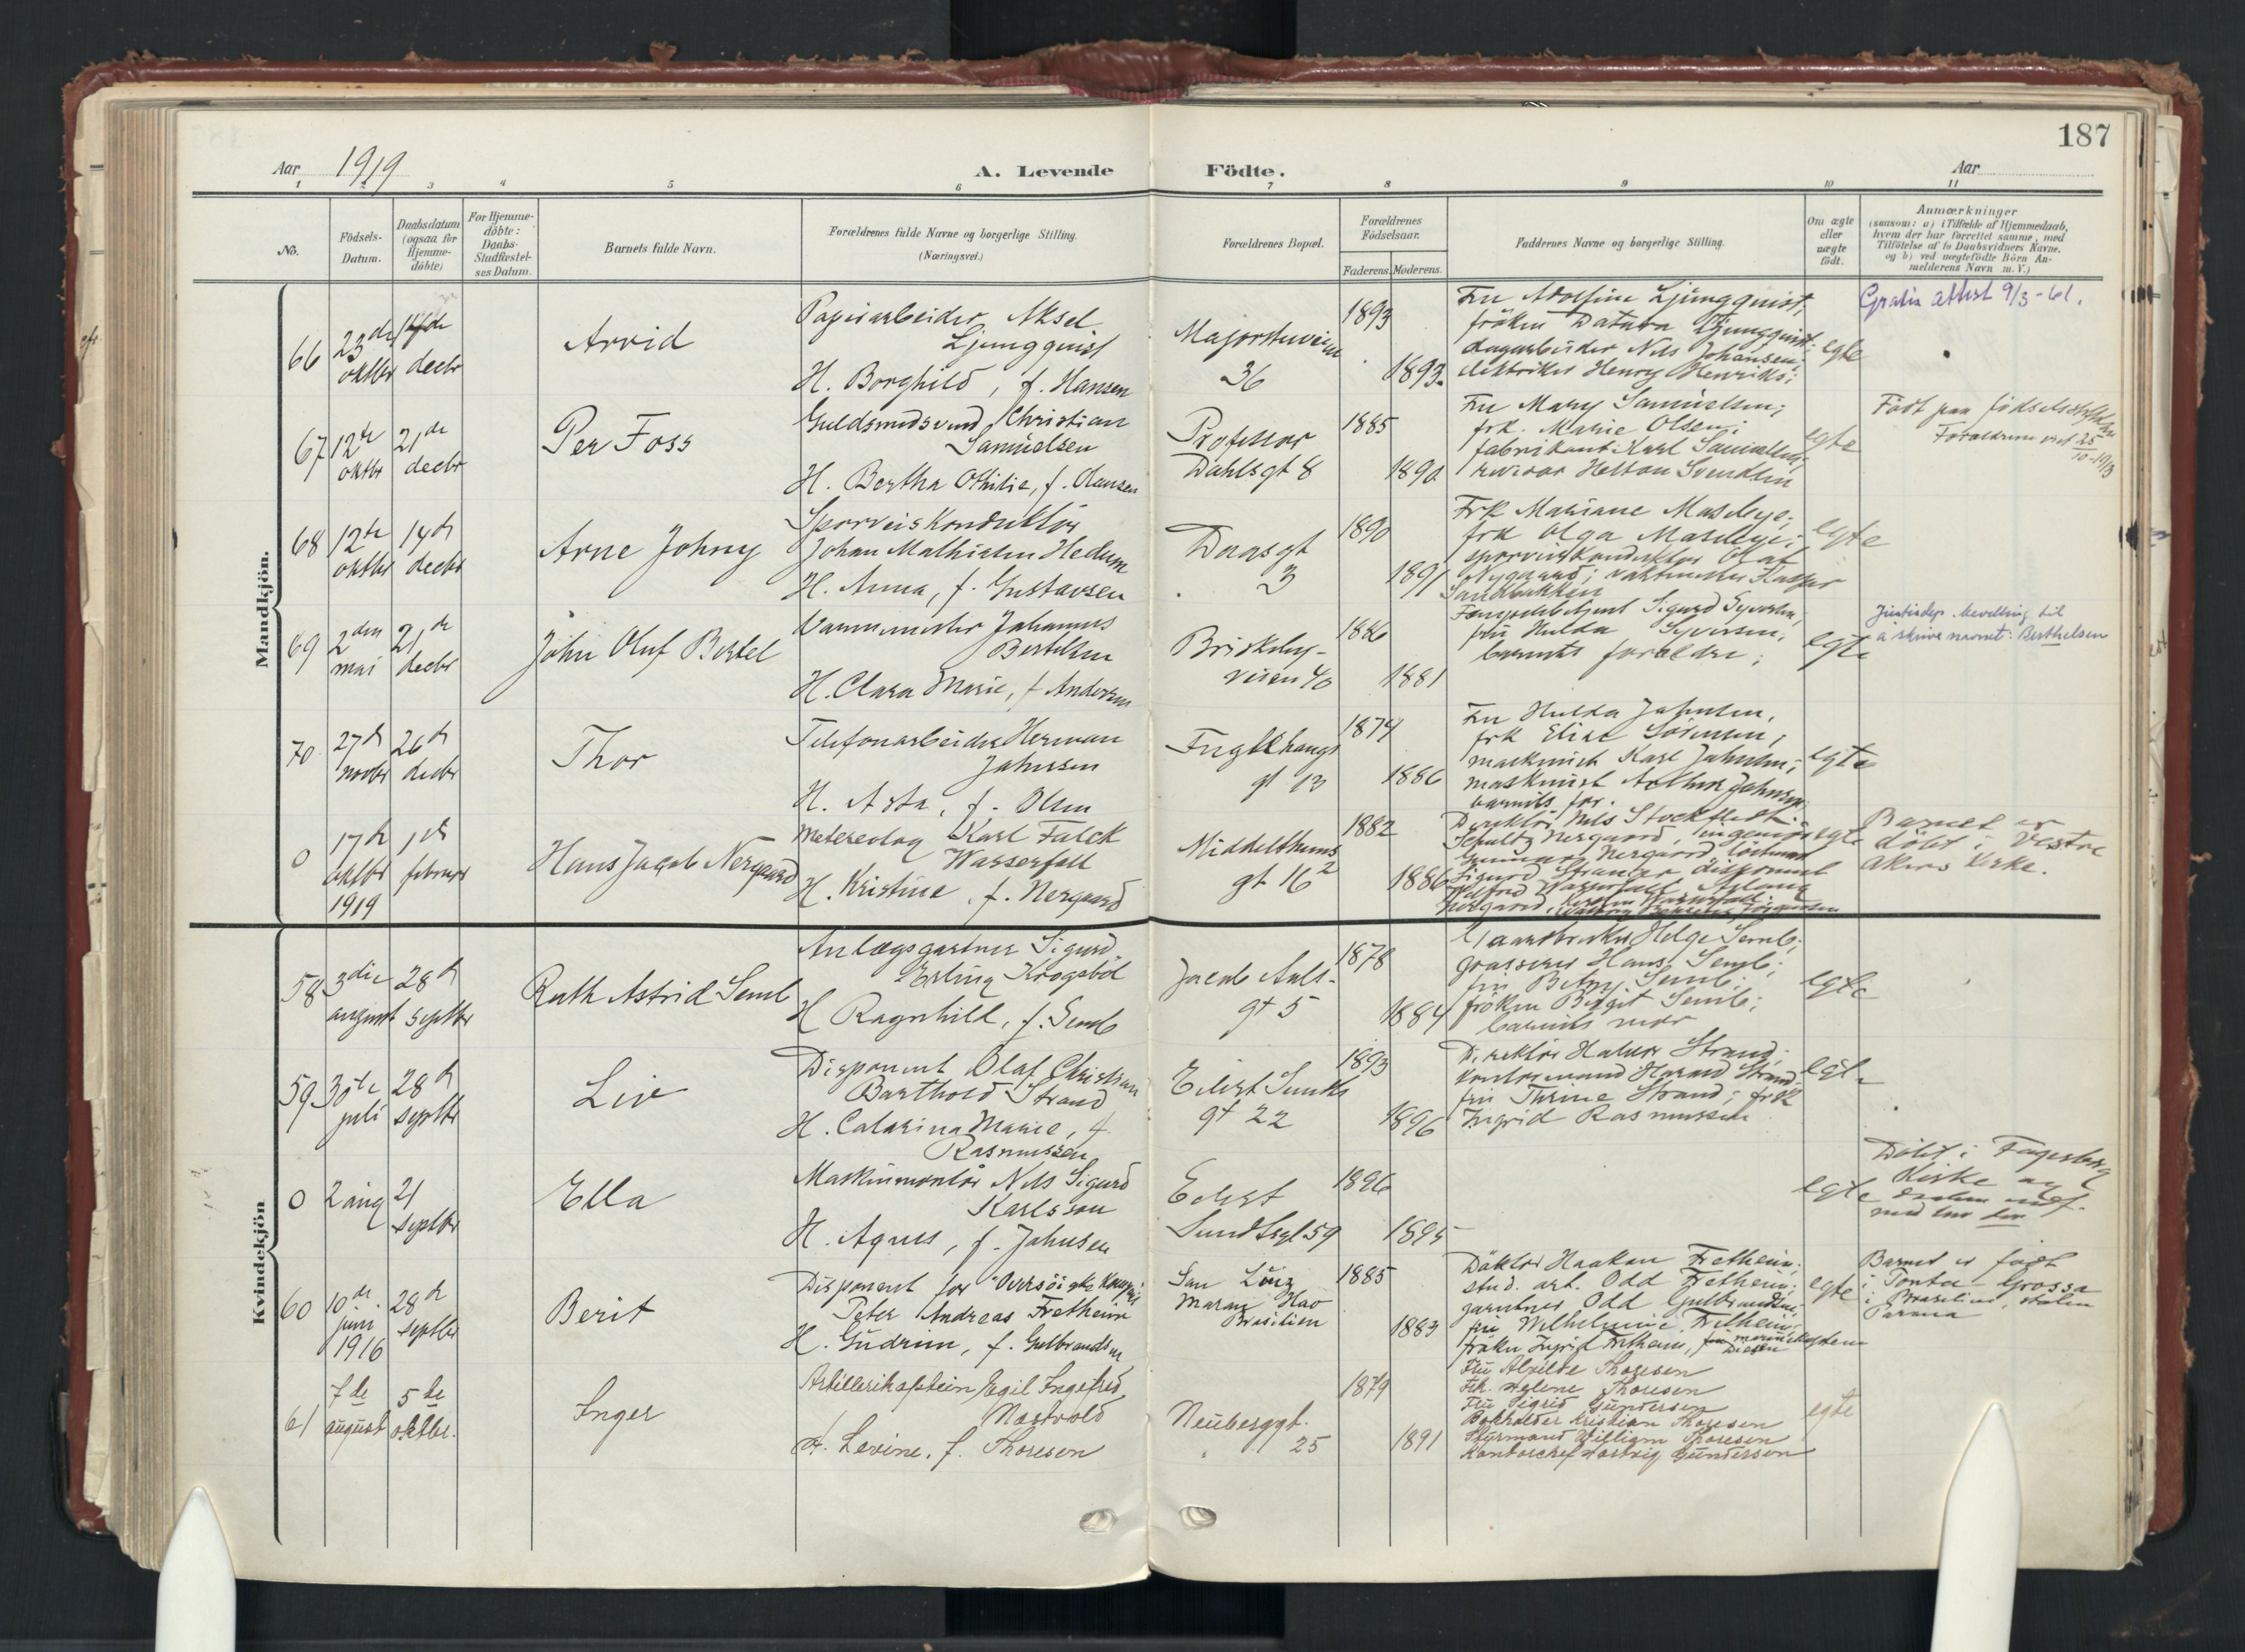 187
Aar 1919
A. Levende Födte.
Aar
1 2 3 4 5 6 7 8 9 10 11
No.
Födsels-Datum.
Daabsdatum (ogsaa for Hjemme-döbte)
For Hjemme-döbte: Daabs-Stadfæstel-ses Datum.
Barnets fulde Navn.
Forældrenes fulde Navne og borgerlige Stilling.
(Næringsvei.)
Forældrenes Bopæl.
Forældrenes Födselsaar.
Faderens. Moderens.
Faddernes Navne og borgerlige Stilling.
Om ægte eller uægte födt.
Anmærkninger
(saasom: a) i Tilfælde af Hjemmedaab, hvem der har forrettet samme, med Tilföielse af to Daabsvidners Navne, og b) ved uægtefödte Börn An-melderens Navn m. V.)
Mandkjön.
66
23de oktbr
decbr
Arvid
Papirarbeider Aksel
Ljungquist
H. Borghild, f. Hansen
Majorstuveien
36
1893
1893
Fru Adolfine Ljungquist,
fröken Datura Ljungquist;
dagarbeider Nils Johansen;
elektriker Henry Henriks;
egte
Gratis attest 9/3-61.
67
12te oktbr
21de decbr
Per Foss
Guldsmedsvend Christian
Samuelsen
H. Bertha Othilie, f. Olausen
Professor
Dahlsgt 8
1885
1890
Fru Mary Samuelsen;
frk. Marie Olsen;
fabrikant Karl Samuelsen;
revisor Helton Svendsen
egte
Födt paa födselsstiftelsen
Forældrene viet 25/10-1913
68
12te oktbr
14de decbr
Arne Johny
Sporveiskonduktör
Johan Mathisen Hedum
H. Anna, f. Gustavsen
Daasgt
3
1890
1891
Frk Mariane Maseleye;
frk Olga Maseleye;
sporveiskonduktör Olaf
Nygaard; vaktmester Kasper
Sandbakken
egte
69
2den mai
21de decbr
John Oluf Bertel
Varmemester Johannes
Bertelsen
H. Clara Marie, f Andersen
Briskeby-
veien 40
1886
1881
Fængselsbetjent Sigurd Syversen,
fru Hulda Syversen,
barnets forældre;
egte
Justisdep. bevilling til
å skrive navnet: Berthelsen
70
27de novbr
26de decbr
Thor
Telefonarbeider Herman
Jahnsen
H. Asta, f. Olsen
Fuglehaugs
gt 13
1874
1886
Fru Hulda Jahnsen,
frk Elise Sörensen,
maskinist Karl Jahnsen;
maskinist Arthur Jahnsen
barnets far.
egte
0
17de oktbr 1919
1ste februar
Hans Jacob Nergaard
Metereolog Karl Falck
Wasserfall
H. Kristine, f. Nergaard
Middelthuns
gt 16²
1882
1886
Direktör Nils Stockfleth
Schultz Nergaard, ingeniör
Gunnar Nergaard, löitnant
egte
Barnet er
döbt i Vestre
Akers kirke.
Kvindekjön
58
3die august
28de septbr
Ruth Astrid Semb
Anlægsgartner Sigurd
Erling Krogsböl
H Ragnhild, f. Semb
Jacob Aals-
gt 5
1878
1884
Gaardbruker Helge Semb;
grosserer Hans Semb;
fru Betny Semb;
fröken Birgit Semb;
barnets mor
egte
59
30te juli
28de septbr
Liv
Disponent Olaf Christian
Barthold Strand
H. Catarina Marie, f.
Rasmussen
Eilert Sundts
gt 22
1893
1896
Direktör Halvor Strand;
kontormand Harard Strand
fru Thrine Strand; frk
Ingrid Rasmussen
egte
0
2 aug
21 septbr
Ella
Maskinmontör Nils Sigurd
Karlsson
H. Agnes, f. Johnsen
Eilert
Sundtsgt 59
1896
1895
egte
Döbt i Fagerborg
kirke
60
10de juni 1916
28de septbr
Berit
Disponent for Oversöiske Kompani
Peter Andreas Fretheim
H. Gudrun, f. Gulbrandsen
San Luiz
Maranhao
Brasilien
1885
1883
Doktor Haakon Fretheim;
stud. art. Odd Fretheim;
gartner Odd Gulbrandsen;
fru Wilhelmine Fretheim;
fröken Ingrid Fretheim,
egte
Barnet er födt
i Ponta Grossa
i Brasilien, staten
Parana
61
7de august
5te oktbr.
Inger
Artillerikaptein Egil Ingefred
Nastvold
H. Levine, f. Thoresen
Neuberggt.
25
1879
1891
Fru Alvilde Thoresen
Frk. Helene Thoresen
Fru Sigrid Gundersen
Bokholder Kristian Thoresen
Styrmand William Thoresen
Kontorchef Hartvig Gundersen
egte